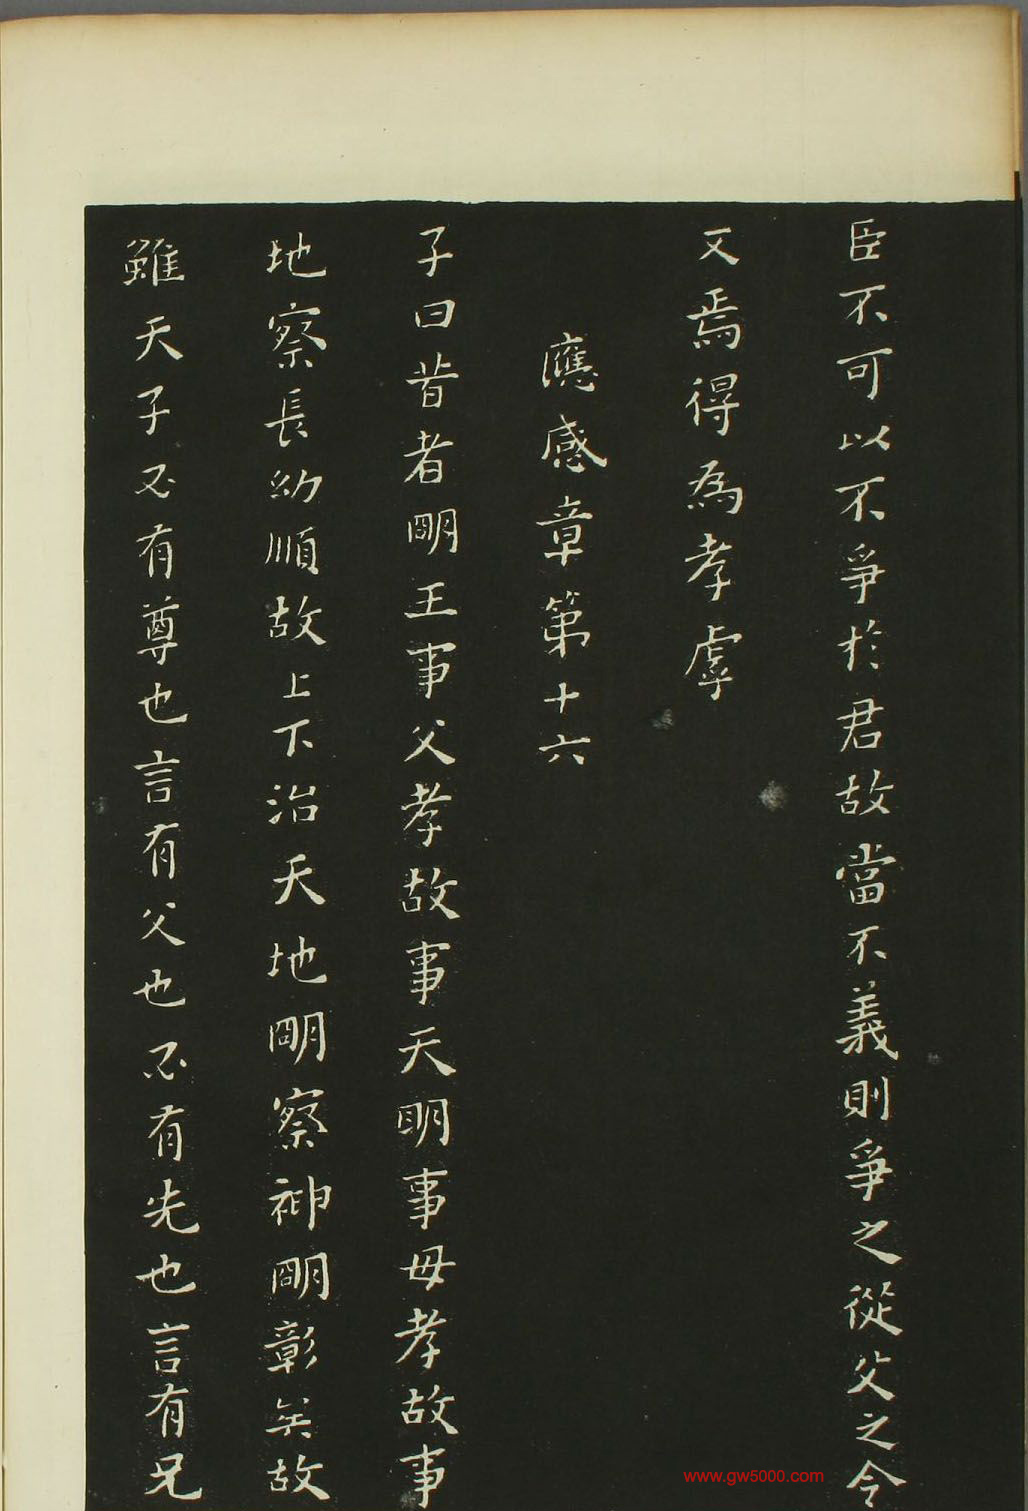 臣不可以不爭於君故當不義則爭之從父之令
又焉得為孝虖
應感章第十六
子曰昔者明王事父孝故事天明事母孝故事
地察長幼順故上下治天地明察神明彰矣故
雖天子必有尊也言有父也必有先也言有兄
www.gw5000.com